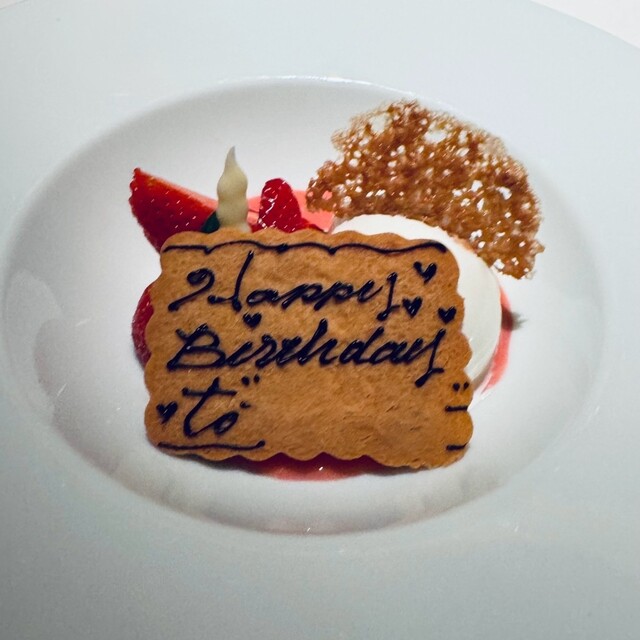 Happy
Birthday
to